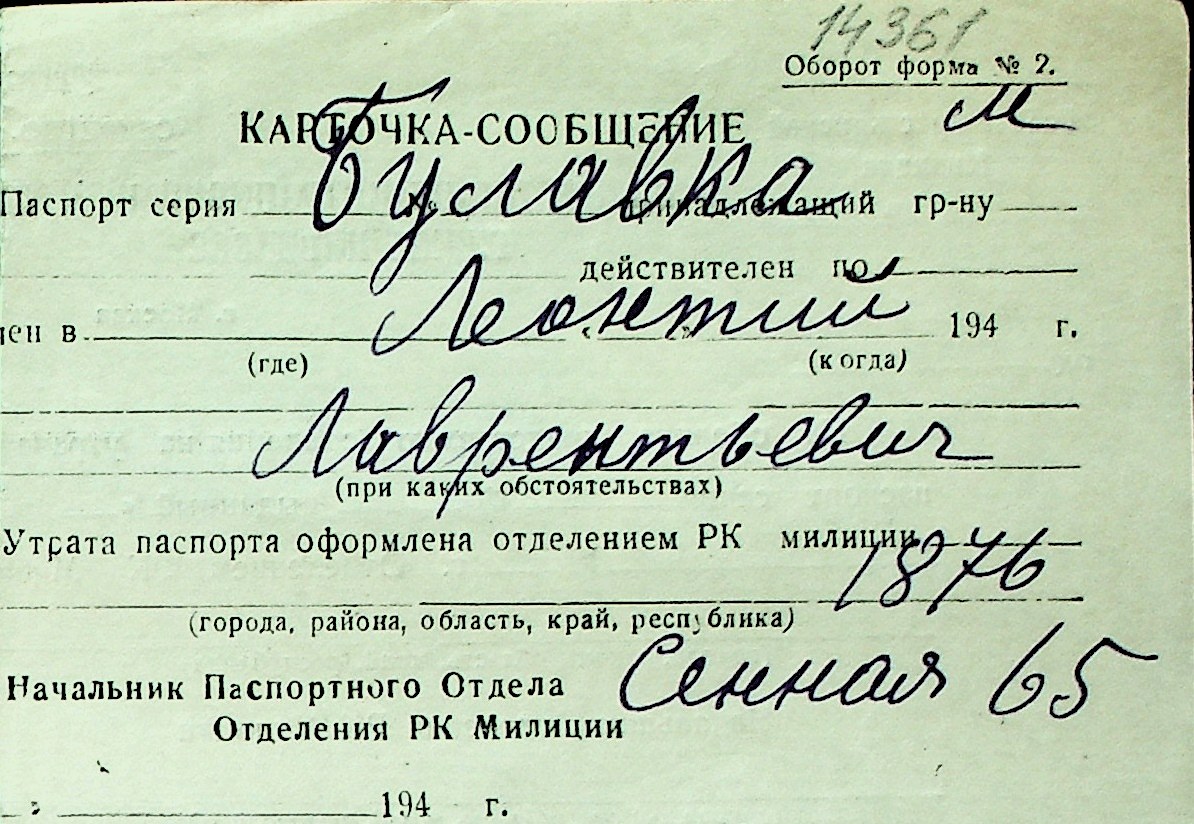 14361
Оборот форма № 2.
м
КАРТОЧКА-СООБЩЕНИЕ
Булавка
Паспорт серия № принадлежащий гр-ну
действителен по
Леонтий
чен в « » 194 г.
(где) (когда)
Лаврентьевич
(при каких обстоятельствах)
Утрата паспорта оформлена отделением РК милиции
1876
(города, района, область, край, республика)
Сенная 65
Начальник Паспортного Отдела
Отделения РК Милиции
» 194 г.